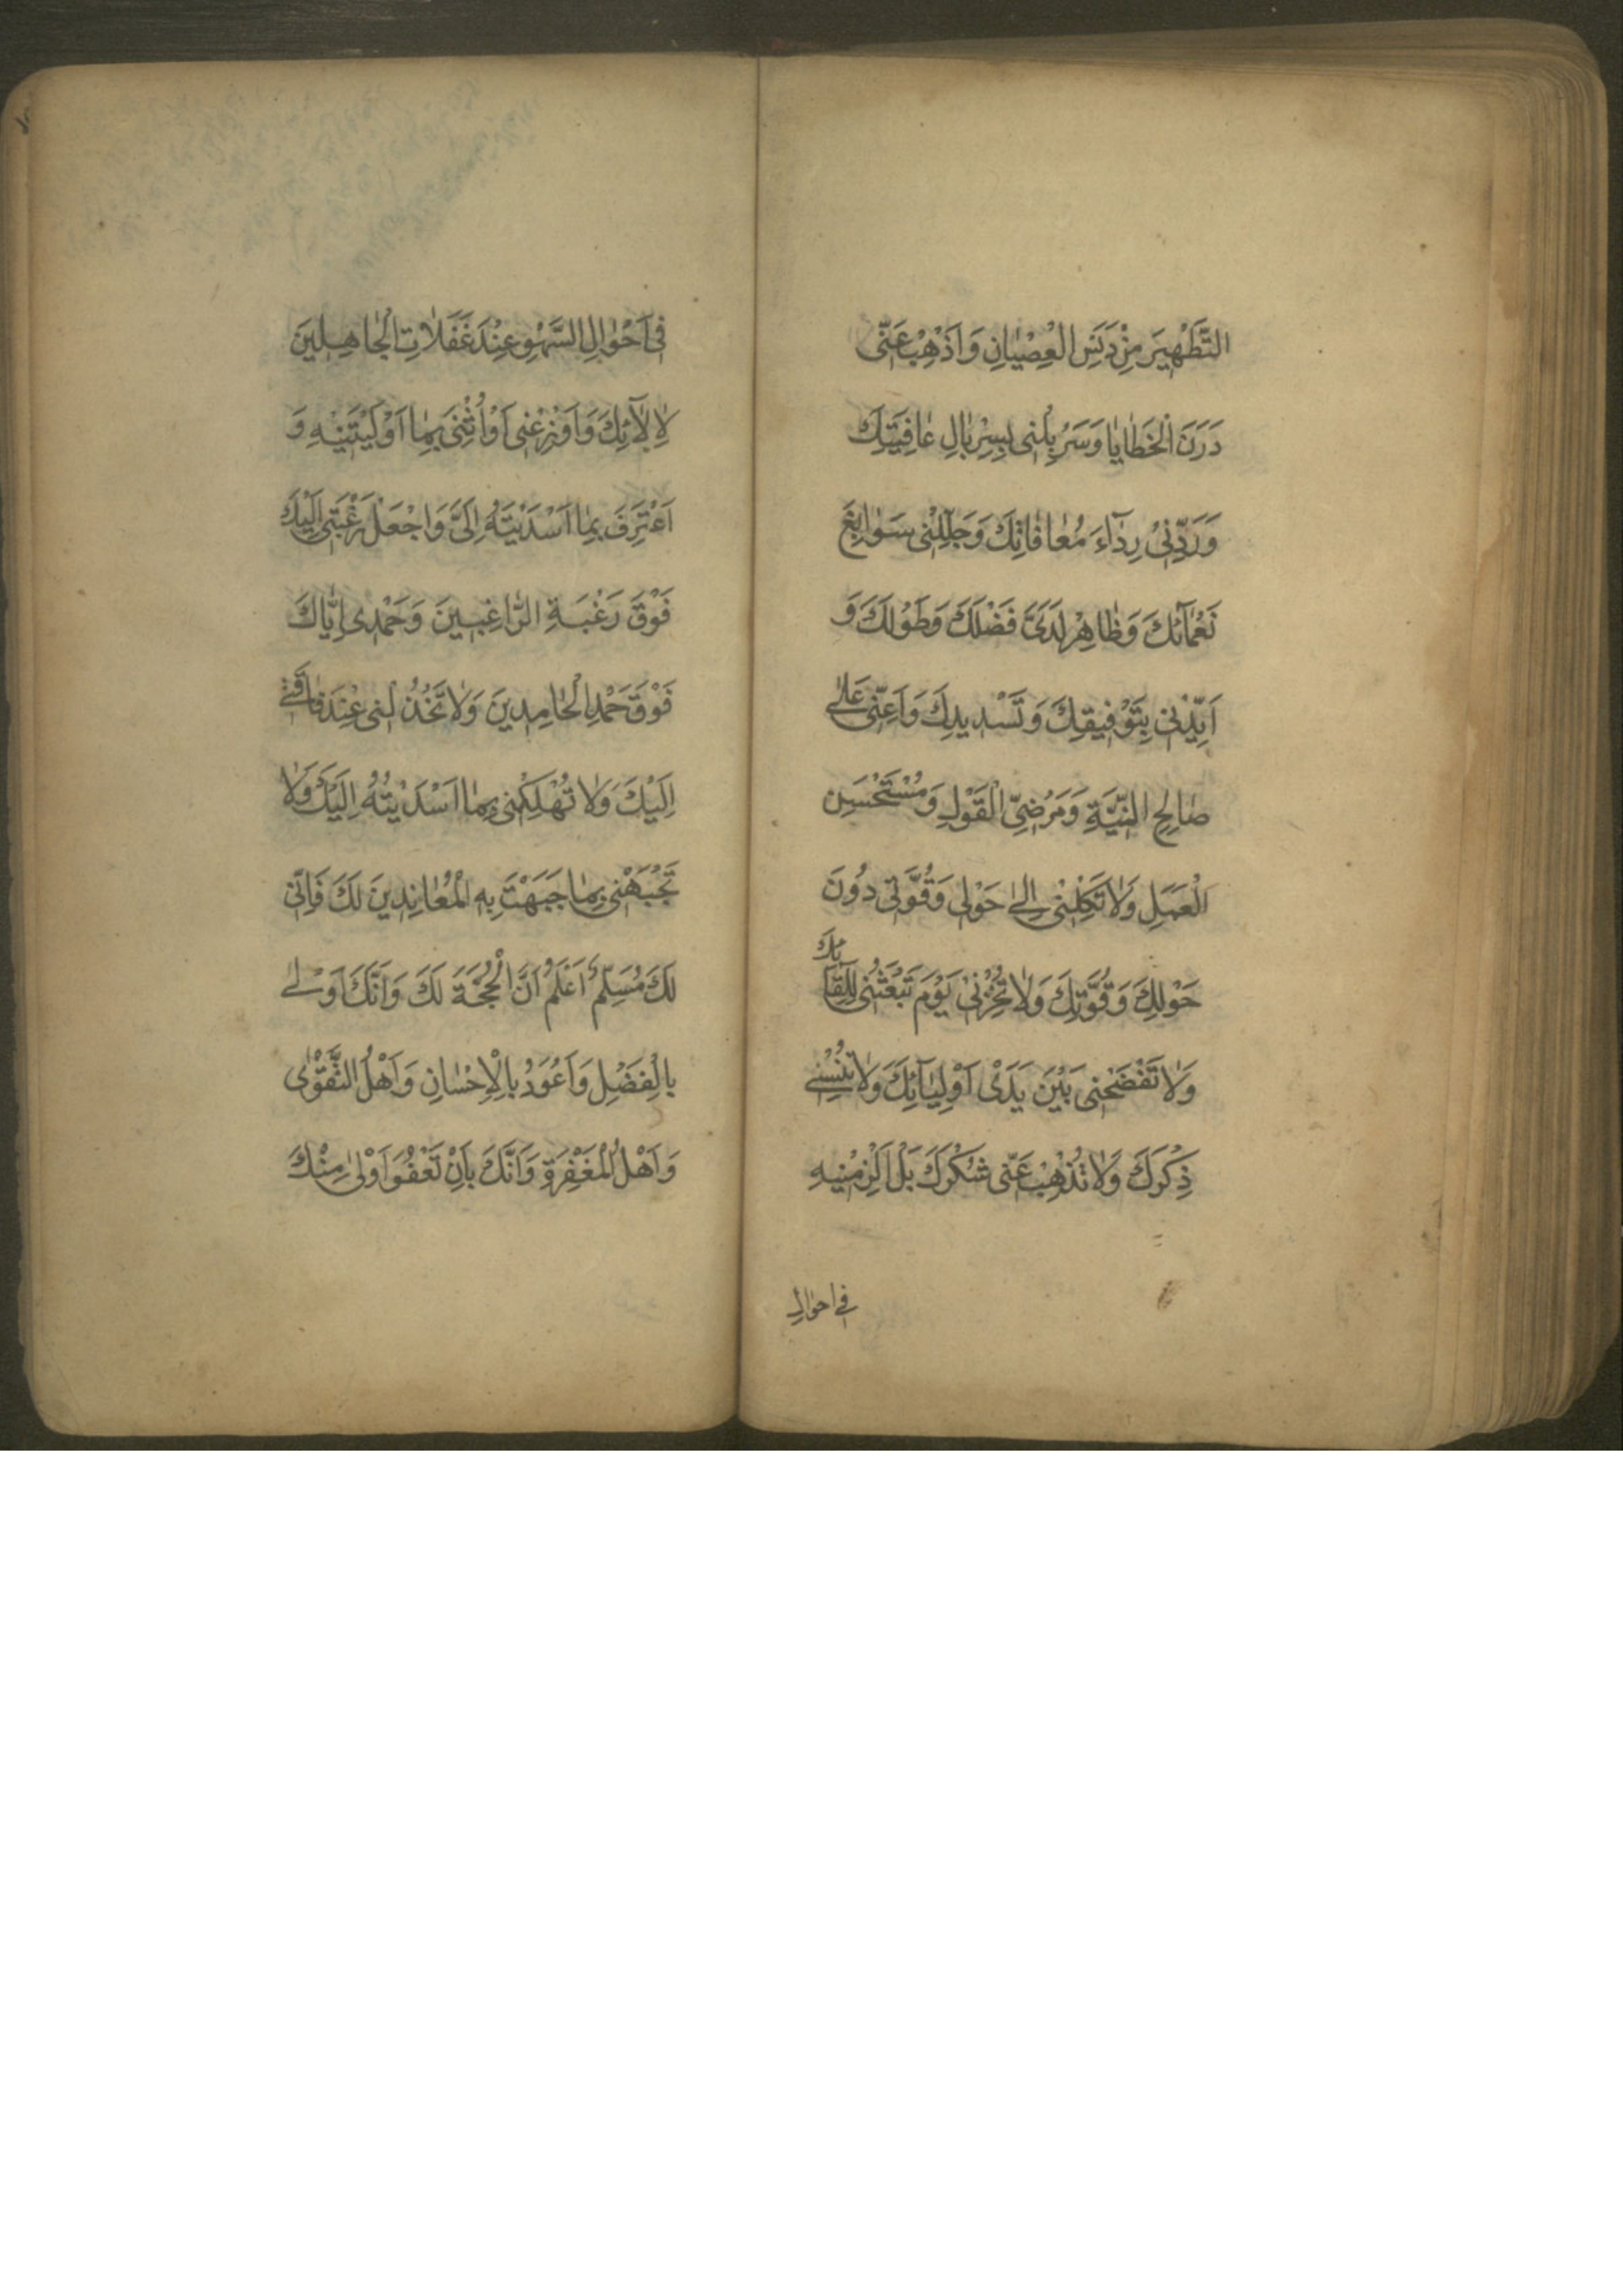 التَّطْهِيرَ مِنْ دَنَسِ الْعِصْيَانِ وَاَذْهِبْ عَنّى
دَرَنَ الْخَطَايَا وَسَرْبِلْنى بِسِرْبَالِ عَافِيَتِكَ
وَرَدِّنى رِدَآءَ مُعَافَاتِكَ وَجَلِّلْنى سَوَابِغَ
نَعْمَآئِكَ وَظَاهِرْ لَدَىَّ فَضْلَكَ وَطَوْلَكَ وَ
اَيِّدْنى بِتَوْفيقِكَ وَتَسْديدِكَ وَاَعِنّى عَلى
صَالِحِ النِّيَّةِ وَمَرْضِىِّ الْقَوْلِ وَمُسْتَحْسَنِ
الْعَمَلِ وَلَا تَكِلْنى اِلى حَوْلى وَقُوَّتى دُونَ
حَوْلِكَ وَقُوَّتِكَ وَلَا تُخْزِنى يَوْمَ تَبْعَثُنى لِلِقَآئِكَ
وَلَا تَفْضَحْنى بَيْنَ يَدَىْ اَوْلِيَآئِكَ وَلَا تُنْسِنى
ذِكْرَكَ وَلَا تُذْهِبْ عَنّى شُكْرَكَ بَلْ اَلْزِمْنيهِ
فى احوال
فى اَحْوَالِ السَّهْوِ عِنْدَ غَفَلَاتِ الْجَاهِلينَ
لِاٰلَآئِكَ وَاَوْزِعْنى اَوْ اُثْنِىَ بِمَا اَوْلَيْتَنيهِ وَ
اَعْتَرِفَ بِمَا اَسْدَيْتَهُ اِلَىَّ وَاجْعَلْ رَغْبَتى اِلَيْكَ
فَوْقَ رَغْبَةِ الرَّاغِبينَ وَحَمْدى اِيَّاكَ
فَوْقَ حَمْدِ الْحَامِدينَ وَلَا تَخْذُلْنى عِنْدَ فَاقَتى
اِلَيْكَ وَلَا تُهْلِكْنى بِمَا اَسْدَيْتُهُ اِلَيْكَ وَلَا
تَجْبَهْنى بِمَا جَبَهْتَ بِهِ الْمُعَانِدينَ لَكَ فَاِنّى
لَكَ مُسَلِّمٌ اَعْلَمُ اَنَّ الْحُجَّةَ لَكَ وَاَنَّكَ اَوْلى
بِالْفَضْلِ وَاَعْوَدُ بِالْاِحْسَانِ وَاَهْلُ التَّقْوٰى
وَاَهْلُ الْمَغْفِرَةِ وَاَنَّكَ بِاَنْ تَعْفُوَ اَوْلى مِنْكَ